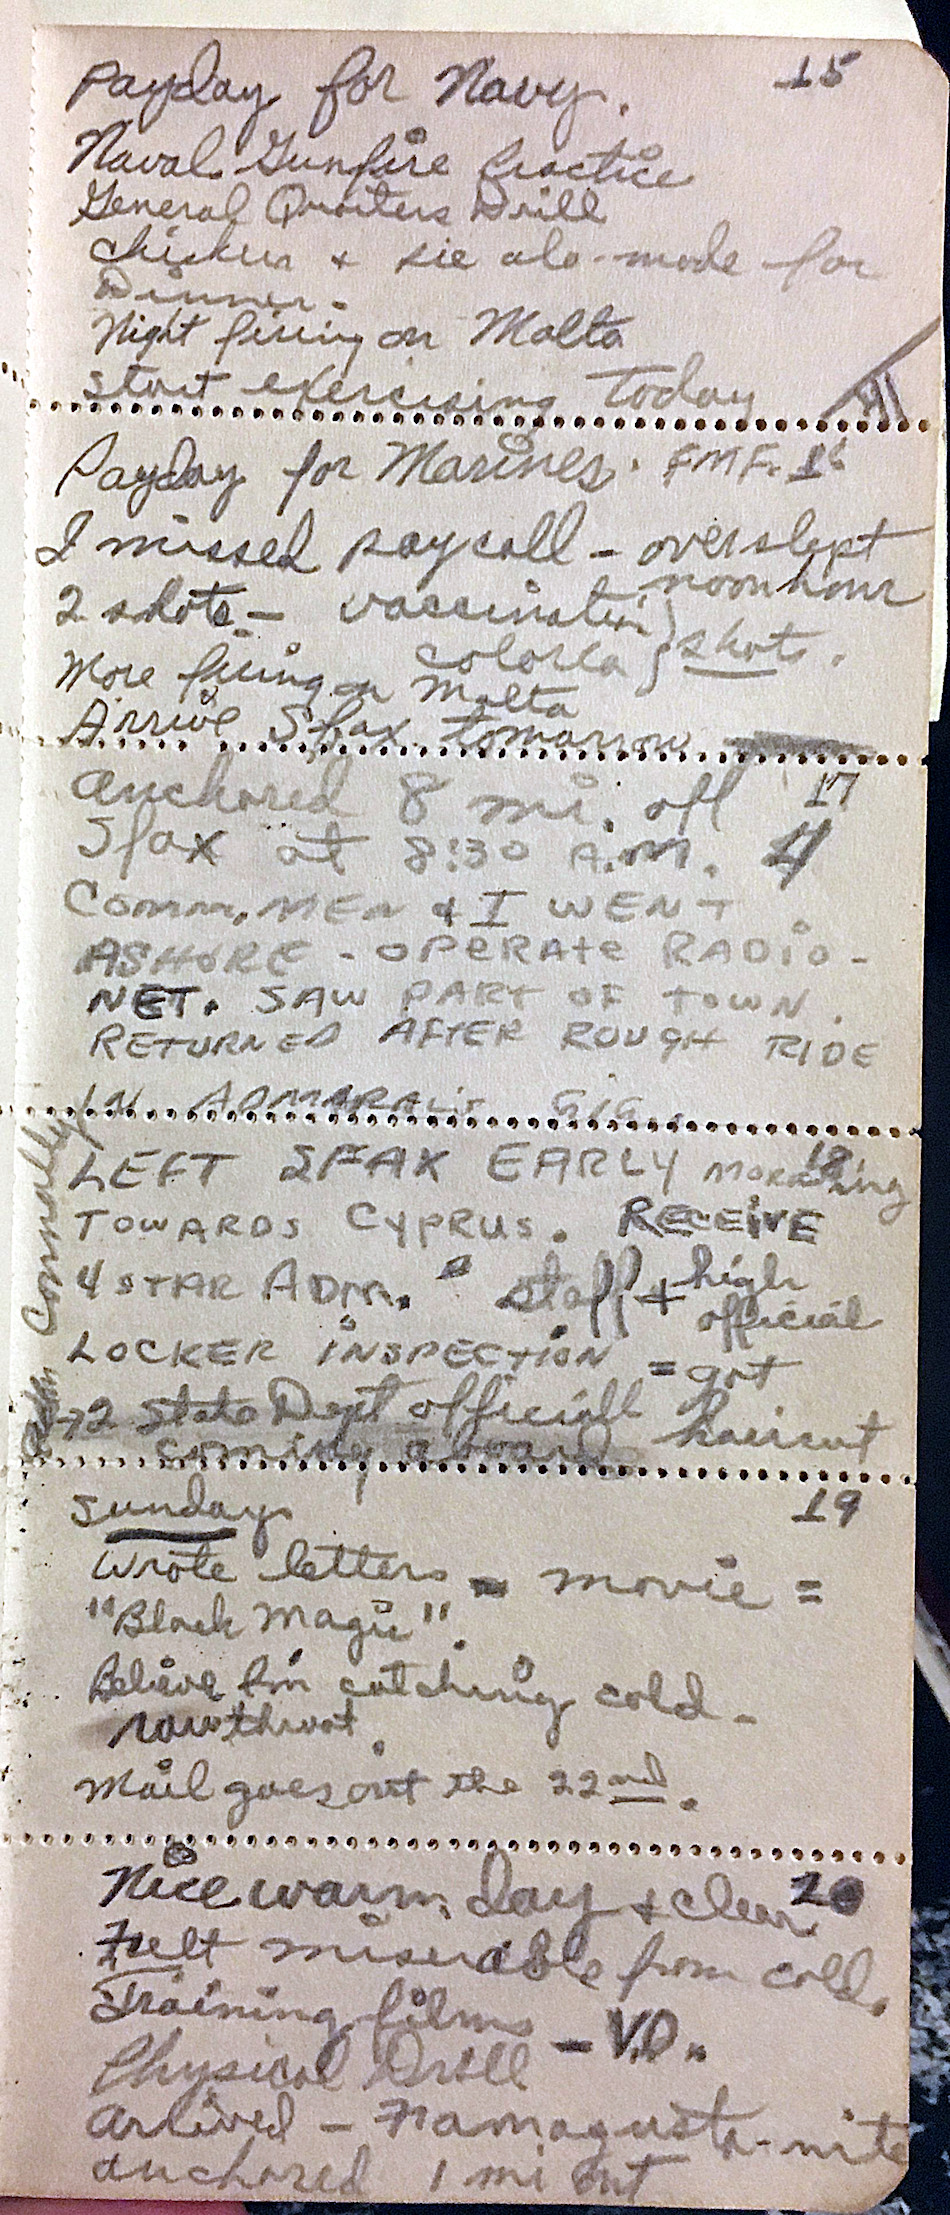 Payday for Navy. 15
Naval Gunfire Practice
General Quarters Drill
Chicken + Pie ala-mode for
Dinner.
Night firing on Malta
start exercising today
Payday for Marines. FMF. 16
I missed paycall - overslept
noon hour
2 shots - vaccination } shots.
colorla
More firing on Malta
Arrive Sfax tomorrow
anchored 8 mi. off 17
Sfax at 8:30 A.M.
Comm. MEN & I WENT
ASHORE - OPERATE RADIO -
NET. SAW PART OF TOWN.
RETURNED AFTER ROUGH RIDE
IN ADMARAL'S GIG.
LEFT SFAX EARLY morning 18
TOWARDS CYPRUS. RECEIVE
4 STAR ADM. staff + high
official
LOCKER INSPECTION = got
haircut
→2 State Dept officiall
coming aboard
Conally
Sundays 19
Wrote letters - movie =
"Black Magic".
Believe I'm catching cold -
raw throat.
Mail goes out the 22nd.
Nice warm day + clear 20
Felt miserable from cold.
Training films - V.D.
Physical Drill
Arived - Famagusta-nite
anchored 1 mi out